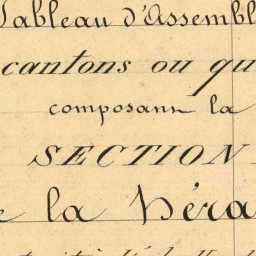 Tableau d'Assembl
cantons ou qu
composant la
SECTION
e la Véra